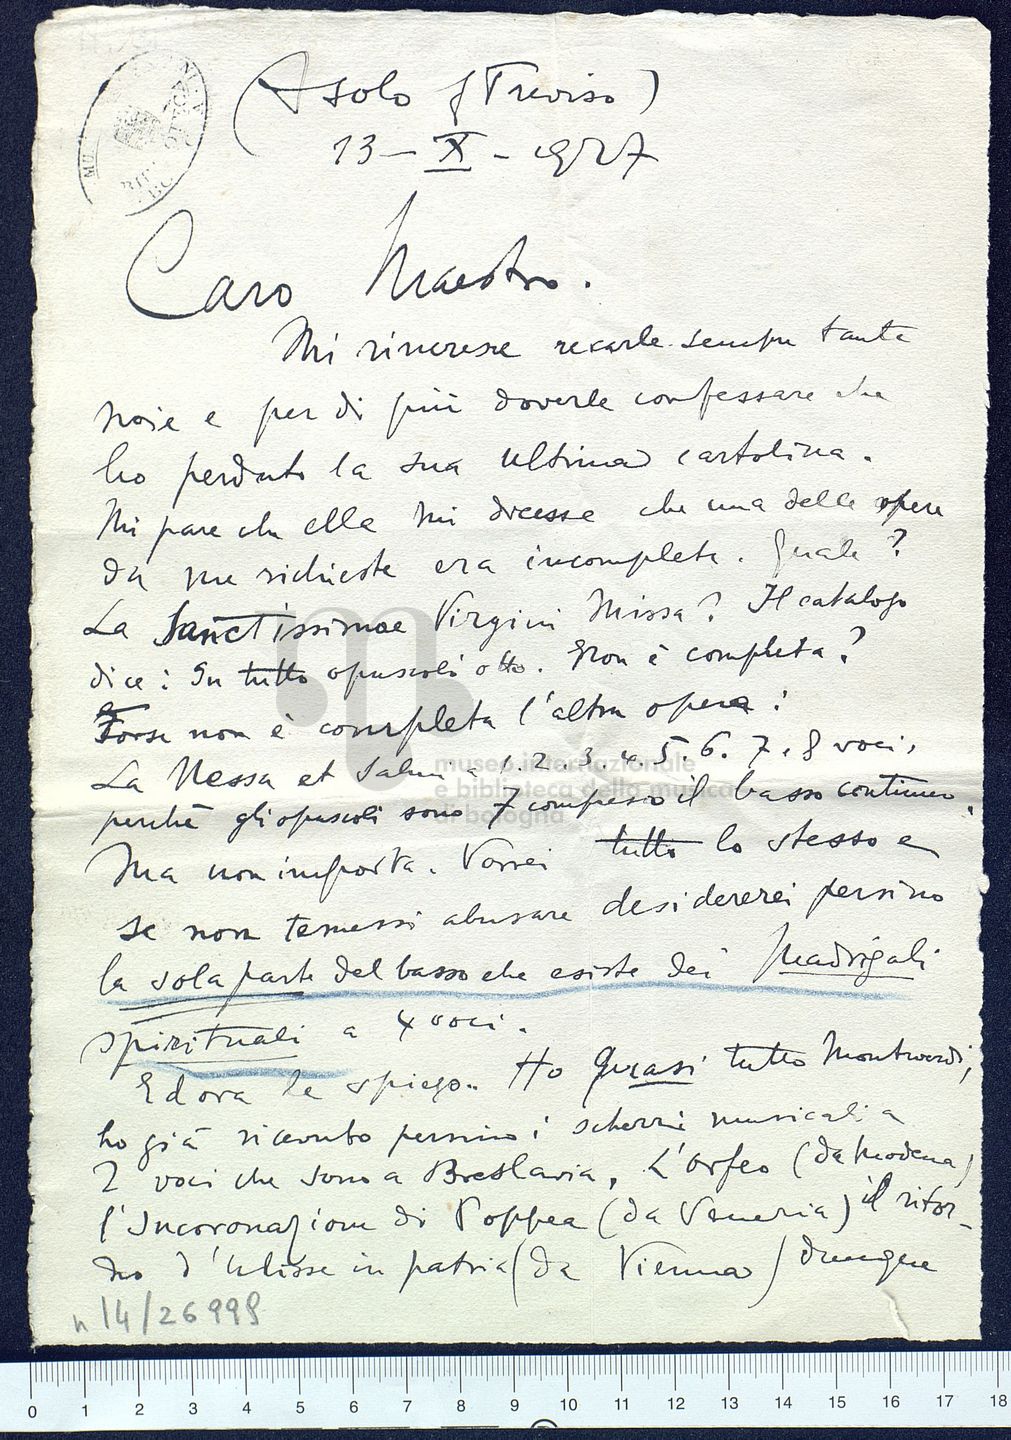 (Asolo (Treviso)
13-X-927
Caro Maestro.
Mi rincresce recarle sempre tante
noie e per di più doverle confessare che
ho perduto la sua ultima cartolina.
Mi pare che ella mi dicesse che una delle opere
da me richieste era incompleta. Quale?
La Sanctissimae Virgini Missa? Il catalogo
dice: In tutto opuscoli otto. Non è completa?
Forse non è completa l'altra opera:
La Messa et Salmi a 1.2.3.4.5.6.7.8 voci,
perchè gli opuscoli sono 7 compreso il basso continuo.
Ma non importa. Vorrei tutto lo stesso e
se non temessi abusare desidererei persino
la sola parte del basso che esiste dei Madrigali
spirituali a 4 voci.
Ed ora le spiego. Ho quasi tutto Monteverdi,
ho già ricevuto persino i scherzi musicali a
2 voci che sono a Breslavia, L'Orfeo (da Modena)
l'Incoronazione di Poppea (da Venezia) il ritor-
no d'Ulisse in patria (da Vienna) dunque
n 14/26999
museo internazionale
e biblioteca della musica
di bologna
0 1 2 3 4 5 6 7 8 9 10 11 12 13 14 15 16 17 18